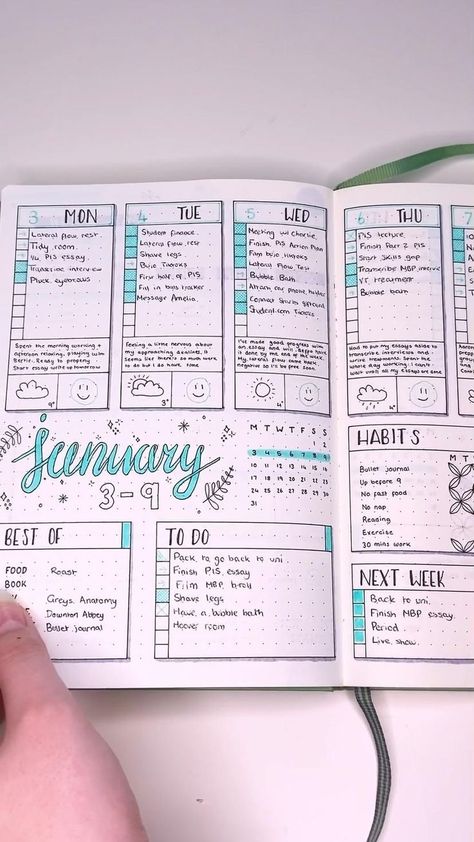 3 MON
Lateral flow test
Tidy room
PIS essay
Transcribe interview
Pluck eyebrows
Spent the morning
afternoon relaxing, playing with
Bertie. Ready to properly
start essay writing tomorrow
9°
4 TUE
Student finance
Lateral flow test
Shave legs
Bujo Tiktoks
First half of PIS
Fill in bits tracker
Message Amelia
Feeling a little nervous about
my approaching deadlines, it
seems like there's so much work
to do but I do have time
3°
5 WED
Meeting w/ Charlie
Finish PIS Action Plan
Film bujo Tiktoks
Lateral Flow Test
Bubble Bath
phone holder
Student.com Tiktoks
I've made good progress with
an essay and will
it done by the end of the week.
My lateral flow came back
negative so I'll be seeing
4°
6 THU
PIS lecture
Finish Part 2 PIS
Start Skills gap
Transcribe MBP interview
VT treatment
Bubble bath
Had to put my essays aside to
transcribe interviews and
write treatments. Spent the
whole day working. I can't
wait until all my essays are done
4°
7
January
3-9
M T W T F S S
1 2
3 4 5 6 7 8 9
10 11 12 13 14 15 16
17 18 19 20 21 22 23
24 25 26 27 28 29 30
31
HABITS
M T
Bullet journal
Up before 9
No fast food
No nap
Reading
Exercise
30 mins work
BEST OF
FOOD Roast
BOOK
Greys Anatomy
Downton Abbey
Bullet journal
TO DO
Pack to go back to uni
Finish PIS essay
Film MBP broll
Shave legs
Have a bubble bath
Hoover room
NEXT WEEK
Back to uni
Finish MBP essay
Period
Live show